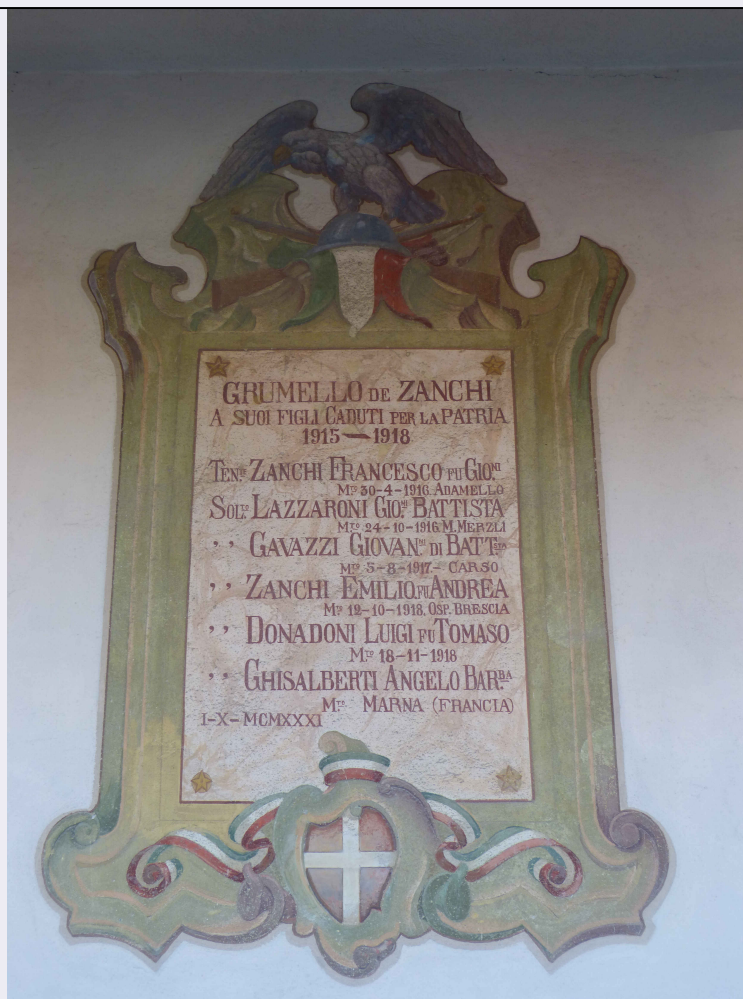 GRUMELLO DE ZANCHI
A SUOI FIGLI CADUTI PER LA PATRIA
1915 — 1918
TEN.TE ZANCHI FRANCESCO FU GIO.NI
M.TO 30-4-1916. ADAMELLO
SOL.TO LAZZARONI GIO.NI BATTISTA
M.TO 24-10-1916 M. MERZLI
,, GAVAZZI GIOVAN.NI DI BATT.STA
M.TO 5-8-1917- CARSO
,, ZANCHI EMILIO FU ANDREA
M.TO 12-10-1918. OSP. BRESCIA
,, DONADONI LUIGI FU TOMASO
M.TO 18-11-1918
,, GHISALBERTI ANGELO BAR.BA
M.TO. MARNA (FRANCIA)
I-X-MCMXXXI